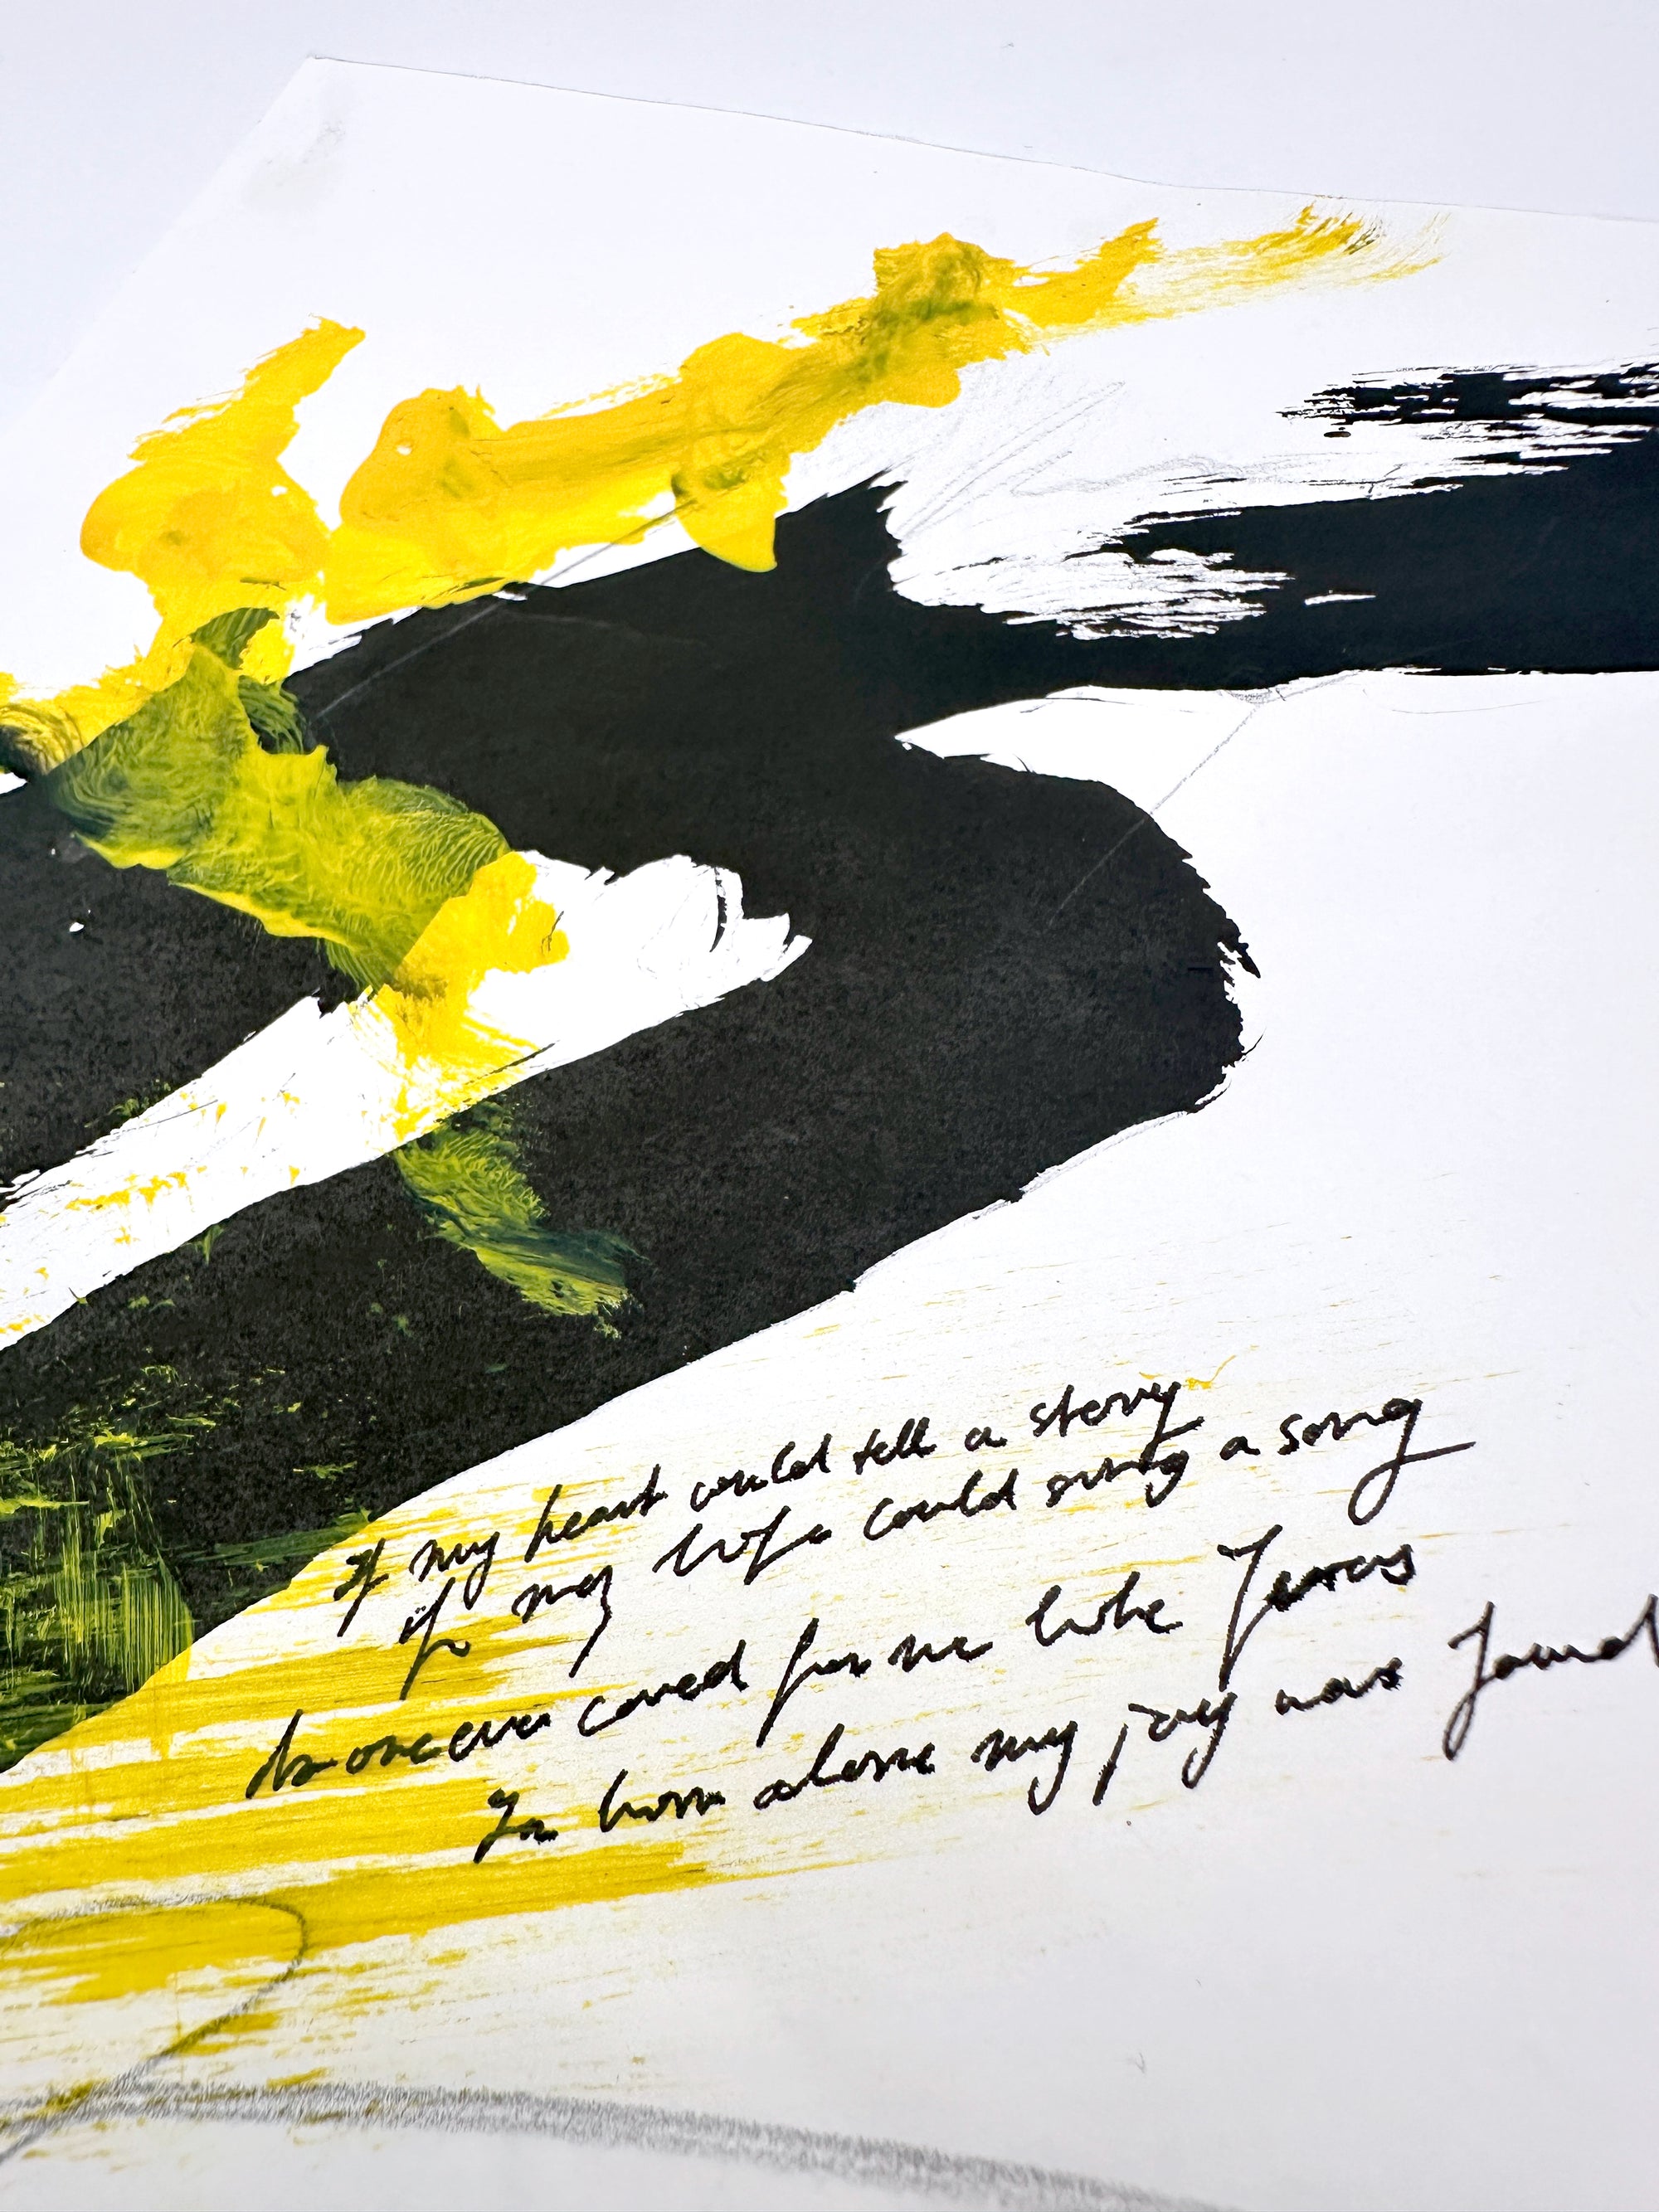 If my heart could tell a story
if my life could sing a song
No one ever cared for me like Jesus
In him alone my joy was found